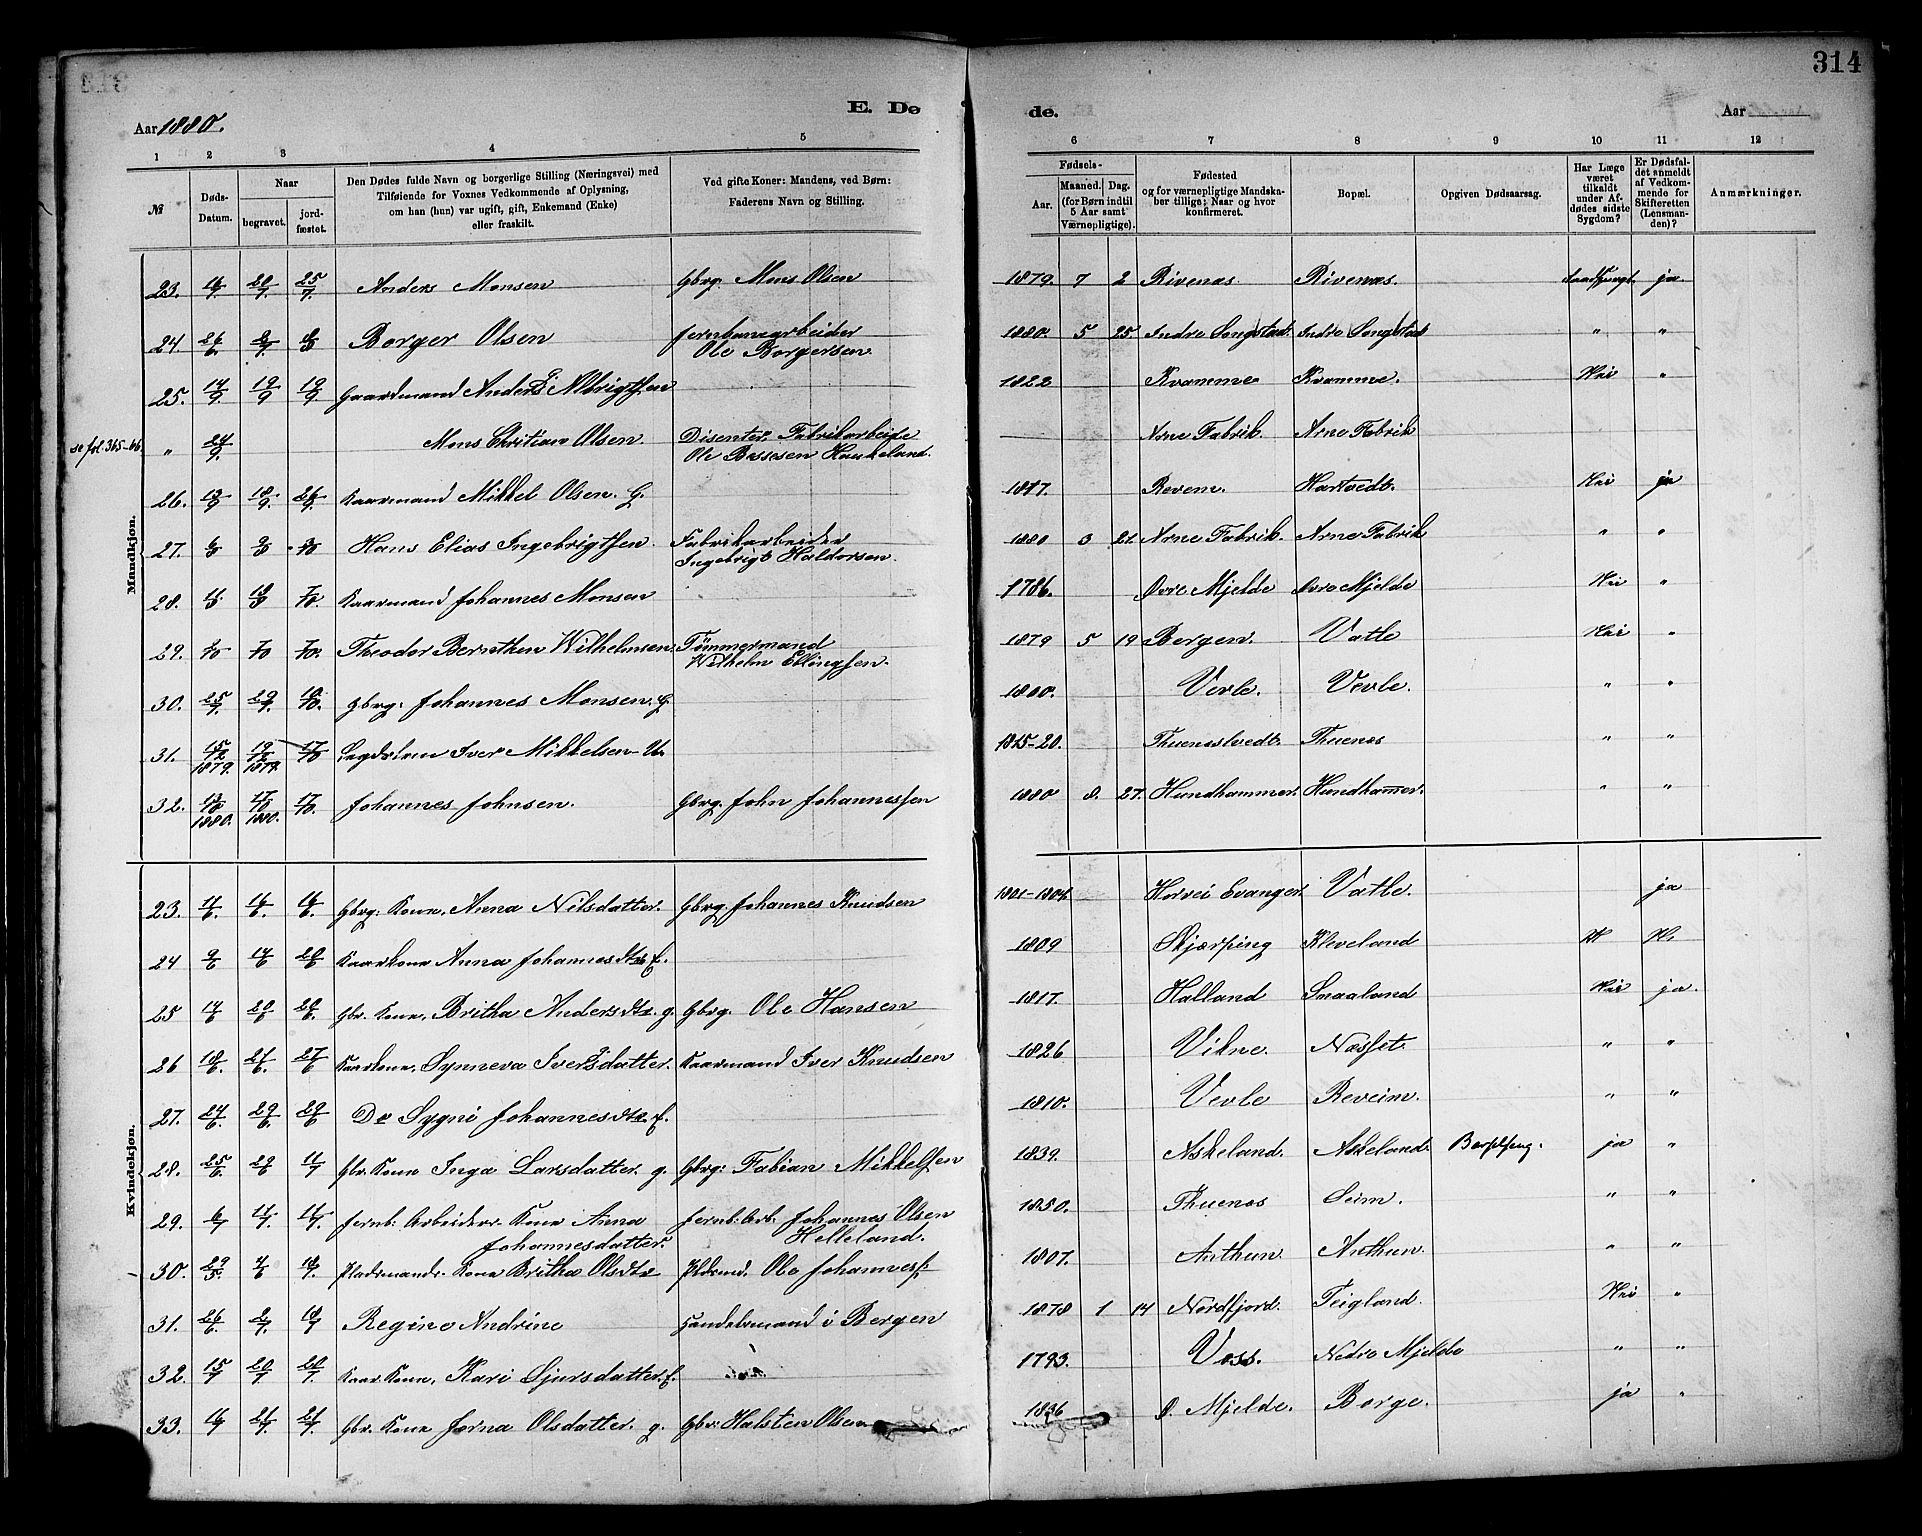 314
E. Døde.
Aar 1880.
Aar
1 2 3 4 5 6 7 8 9 10 11 12
№
Døds-Datum.
Naar
begravet.
jordfæstet.
Den Dødes fulde Navn og borgerlige Stilling (Næringsvei) med
Tilføiende for Voxnes Vedkommende af Oplysning,
om han (hun) var ugift, gift, Enkemand (Enke)
eller fraskilt.
Ved gifte Koner: Mandens, ved Børn:
Faderens Navn og Stilling.
Fødsels-
Aar. Maaned. Dag.
(for Børn indtil
5 Aar samt
Værnepligtige).
Fødested
og for værnepligtige Mandska-
ber tillige: Naar og hvor
konfirmeret.
Bopæl.
Opgiven Dødsaarsag.
Har Læge
været
tilkaldt
under Af-
dødes sidste
Sygdom?
Er Dødsfal-
det anmeldt
af Vedkom-
mende for
Skifteretten
(Lensman-
den)?
Anmærkninger.
Mandkjøn.
23. 16/7 20/7 25/7 Anders Monsen Gbrg. Mons Olsen 1879. 7 2 Rivenæs Rivenæs. ja
24. 26/6. Borger Olsen Jernbanearbeider 1880. 5 25 Indre Songstad. Indre Songstad " "
Ole Borgersen
25. 14/9 19/9 19/9 Gaardmand Anders Albrigtsen 1822 Kvamme Kvamme. Nei "
se fol. 365-66. " 24/9. Mons Christian Olsen. Disenter. Fabrikarbeide Arne Fabrik. Arne Fabrik
Ole Bessesen Haukeland.
26. 13/9 18/9. 26/9. Kaarmand Mikkel Olsen. G. 1817. Revem. Hartvedt. Nei ja
27. Hans Elias Ingebrigtsen. Fabrikarbeider 1880 3 21. Arne Fabrik. Arne Fabrik " "
Ingebrigt Haldorsen.
28. Kaarmand Johannes Monsen 1786. Øvre Mjelde Øvre Mjelde Nei "
29. Theodor Bernthen Wilhelmsen. Tömmermand 1879 5 19 Bergen. Vatle Nei "
Wilhelm Ellingsen.
30. 25/9. 29/9. 10/10. Gbrg. Johannes Monsen. G 1800. Vevle. Vevle. " "
31. 15/12 1879. 19/12 1879. 17/10 Lægdslem Iver Mikkelsen U. 1815-20. Thuenæstvedt. Thuenæs " "
32. 13/10 1880. 17/10 1880. 17/10. Johannes Johnsen. Gbrg. John Johannessen 1880 8. 27. Hundhammer. Hundhammer. " "
Kvindekjøn.
23. Gbrg. Kone, Anna Nilsdatter. Gbrg. Johannes Knudsen 1801-1804 Horvei Evanger Vatle. ja
24 9/6 14/6 20/6 Kaarkone Anna Johannesdtr E. 1809 Skjærping Kleveland
25 14/6 20/6 20/6. Gbr. Kone, Britha Andersdtr. g. Gbrg. Ole Hansen 1817. Halland Smaaland Nei ja.
26 18/6. 27/6. 27/6 Kaarkone, Synneva Iversdatter. Kaarmand Iver Knudsen 1826 Vikne. Næsset. " "
27. 24/6. 29/6. 29/6 Do Sygni Johannesdtr E. 1810. Vevle Reveim. " "
28. 25/6. 29/6 11/7 Gbr. Kone Inga Larsdatter. g. Gbrg: Fabian Mikkelsen 1839. Askeland. Askeland. Barselseng. ja "
29. 6/7 11/7. 11/7. Jernb. Arbeiders Kone Anna Jernb: Arb. Johannes Olsen 1850. Thuenæs Seim. " "
Johannesdatter. Helleland.
30. 29/5. 4/6 18/7. Pladsmands Kone Britha Olsdtr Pldsmd. Ole Johanness. 1807. Anthun Anthun. " "
31. 26/6. 2/7. 18/7 Regine Andrine Handelsmand i Bergen 1878 1 14 Nordfjord. Teigland. Nei "
32. 15/7 20/7 20/7. Kaar. Kone, Kari Sjursdatter. E. 1793. Voss. Nedre Mjelde " "
33. 16/7 21/7. 21/7. Gbr. Kone Jorna Olsdatter. g. Gbr: Halsten Olsen 1836 Ø. Mjelde. Borge. ja "